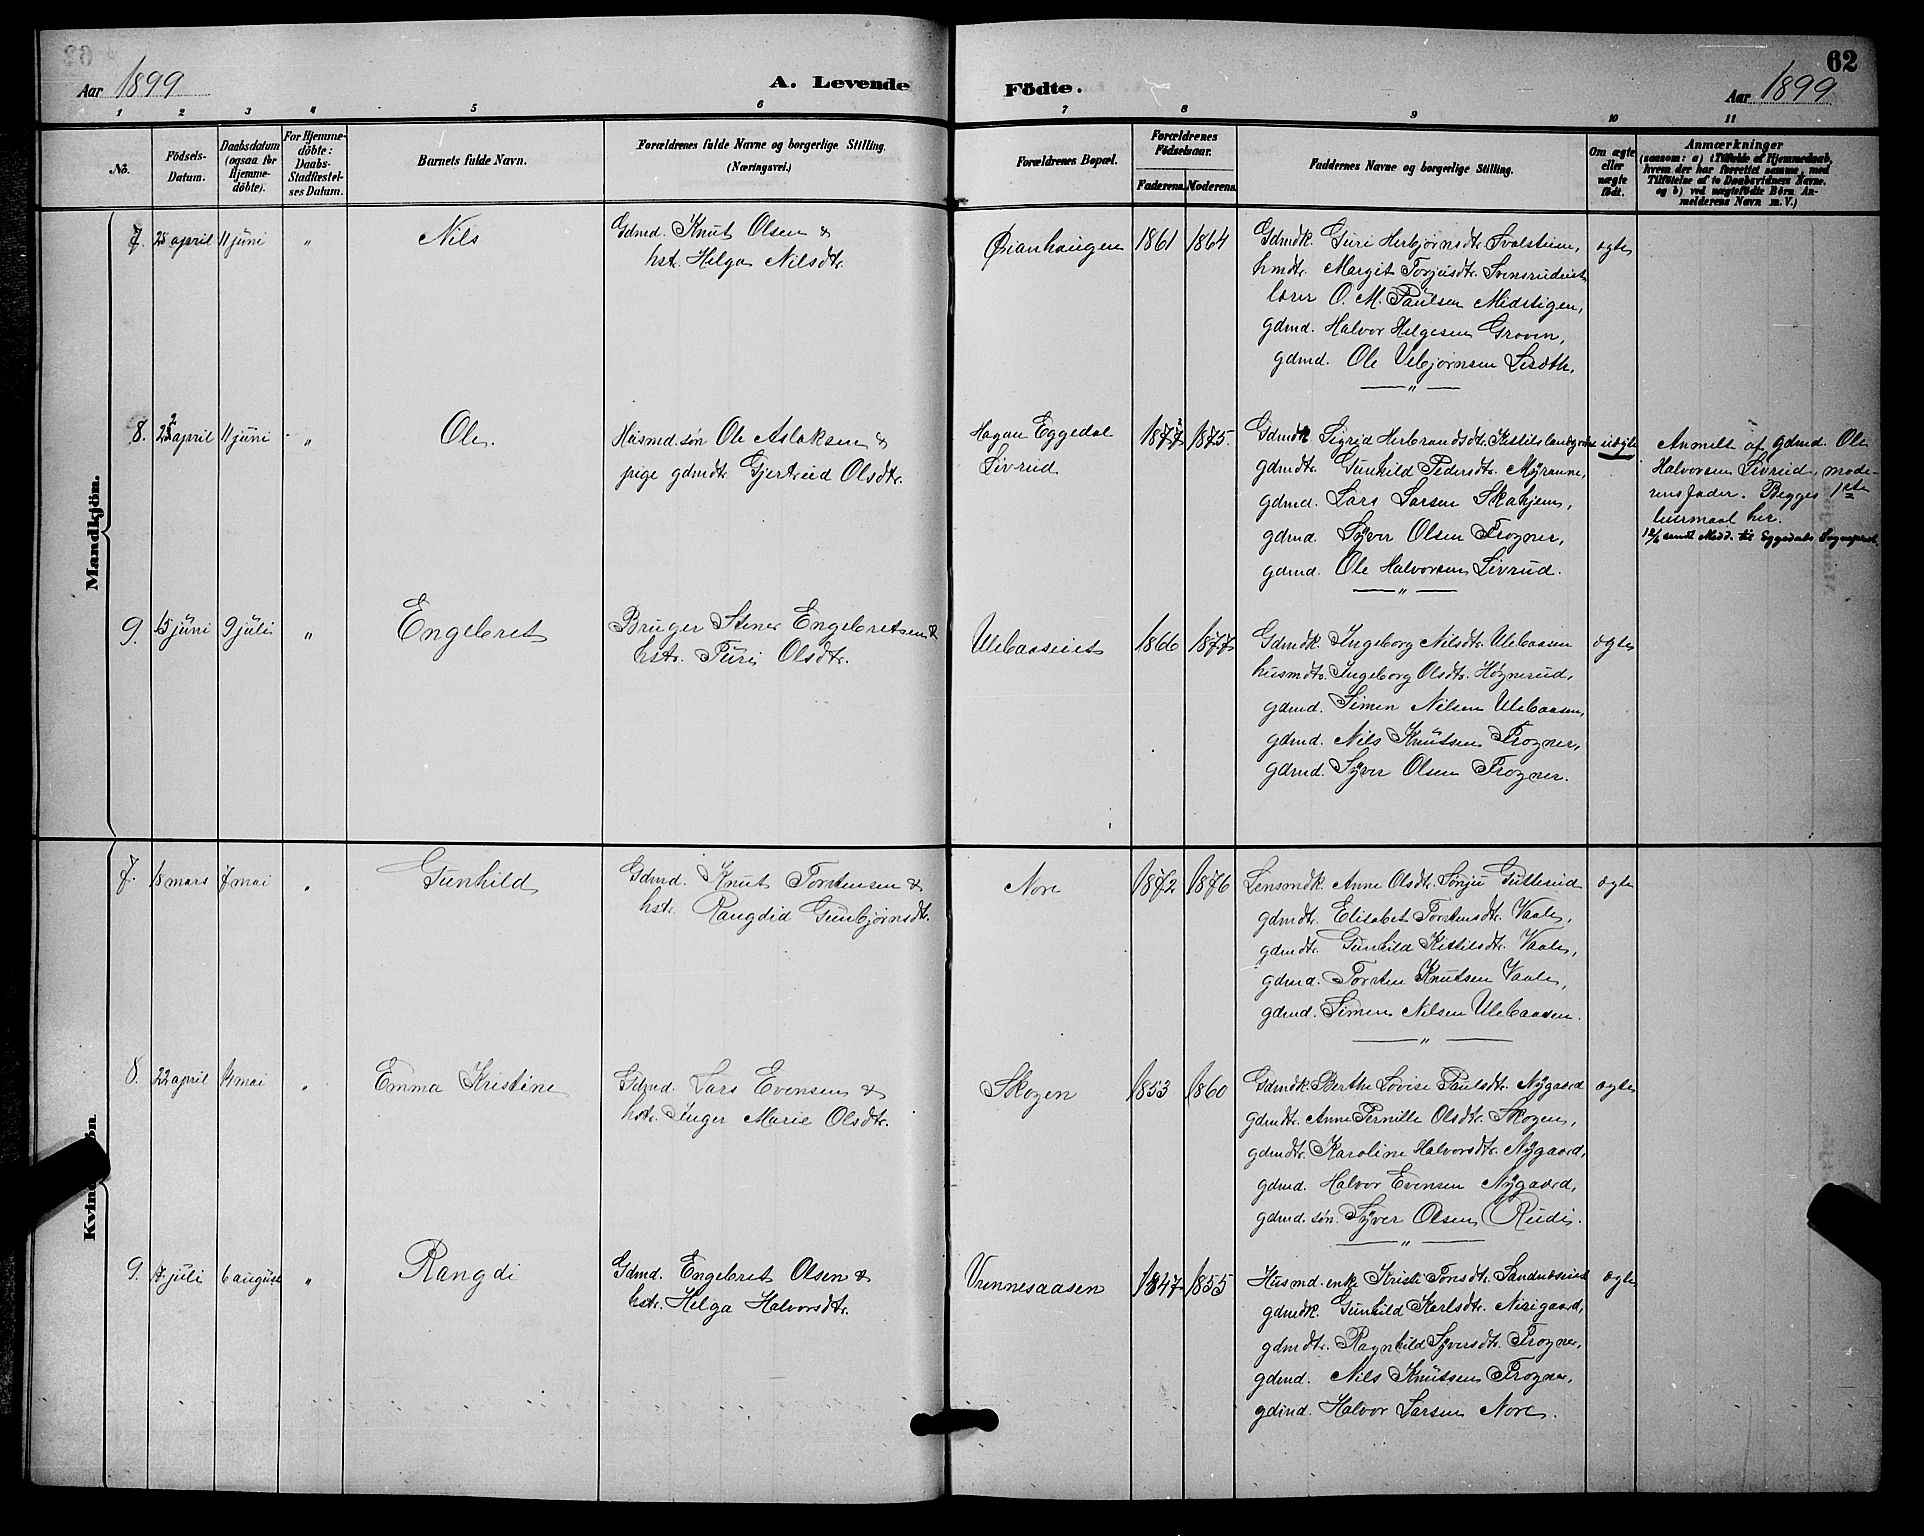 62
Aar 1899
A. Levende Födte.
Aar 1899
1 2 3 4 5 6 7 8 9 10 11
No.
Födsels-Datum.
Daabsdatum (ogsaa for Hjemme-döbte).
For Hjemme-döbte: Daabs-Stadfæstel-ses Datum.
Barnets fulde Navn.
Forældrenes fulde Navne og borgerlige Stilling.
(Næringsvei.)
Forældrenes Bopæl.
Forældrenes Födselsaar.
Faderens. Moderens.
Faddernes Navne og borgerlige Stilling.
Om ægte eller uægte födt.
Anmærkninger
(saasom: a) i Tilfælde af Hjemmedaab, hvem der har forrettet samme, med Tilföielse af to Daabsvidners Navne, og b) ved uægtefödte Börn An-melderens Navn m. V.)
Mandkjön.
7. 25 april 11 juni " Nils
Gdmd. Knut Olsen &
hst. Helga Nilsdtr.
Øianhaugen 1861 1864
Gdmdk. Guri Herbjørnsdtr.
hmdtr. Margit Torjusdtr.
lærer O. M. Paulsen Midstigen,
gdmd. Halvor Helgesen Groven,
gdmd. Ole Vebjørnsen
ægte
8. april 11 juni " Ole.
Husmd. søn Ole Aslaksen &
pige gdmdt. Gjertrud Olsdtr.
Hagan Eggedal
Sivrud
1875.
Gdmdk. Sigrid Herbrandsdtr.
gdmdtr. Gunhild Pedersdtr. Myranne,
gdmd. Lars Larsen Skahjem,
gdmd. Syver Olsen Frogner,
gdmd. Ole Halvorsen Sivrud.
uægte
Anmelt af gdmd. Ole
Halvorsen Sivrud, mode-
rens fader. Begges 1ste
leiermaal her.
12/6 sendt Medd. til Eggedals Sogneprest.
9. 15 juni 9 juli " Engebret
Bruger Stener Engebretsen &
hst. Turi Olsdtr.
Ulebaaseiet 1866 1877
Gdmdk. Ingeborg Nilsdtr. Ulebaasen
husmdtr. Ingeborg Olsdtr. Høgnerud,
gdmd. Simen Nilsen Ulebaasen,
gdmd. Nils Knutsen Frogner,
gdmd. Syver Olsen Frogner.
ægte
Kvindekjön
7. 18 mars 7 mai " Gunhild
Gdmd. Knut Torstensen &
hst. Rangdid Gunbjørnsdtr.
Nore 1872 1876
Lensmdk. Anne Olsdtr. Sønju Gutterud
gdmdtr. Elisabet Torstensdtr. Vaale,
gdmdtr. Gunhild Kittilsdtr. Vaale,
gdmd. Torsten Knutsen Vaale,
gdmd. Simen Nilsen Ulebaasen.
ægte
8. 22 april 14 mai " Emma Kristine
Gdmd. Lars Evensen &
hst. Inger Marie Olsdtr.
Skogen 1853 1860
Gdmdk. Berthe Lovise Paulsdtr. Nygaard
gdmdtr. Anne Pernille Olsdtr. Skogen,
gdmdtr. Karoline Halvorsdtr. Nygaard,
gdmd. Halvor Evensen Nygaard,
gdmd. søn. Syver Olsen Rudi.
ægte
9. 17 juli 6 august " Rangdi
Gdmd. Engebret Olsen &
hst. Helga Halvorsdtr.
Vrennesaasen 1847 1855
Husmd. enke Kristi Tonsdtr.
gdmdk. Gunhild Karlsdtr. Nirigaard,
gdmdtr. Ragnhild Syversdtr. Frogner,
gdmd. Nils Knutsen Frogner,
gdmd. Halvor Larsen Nore.
ægte